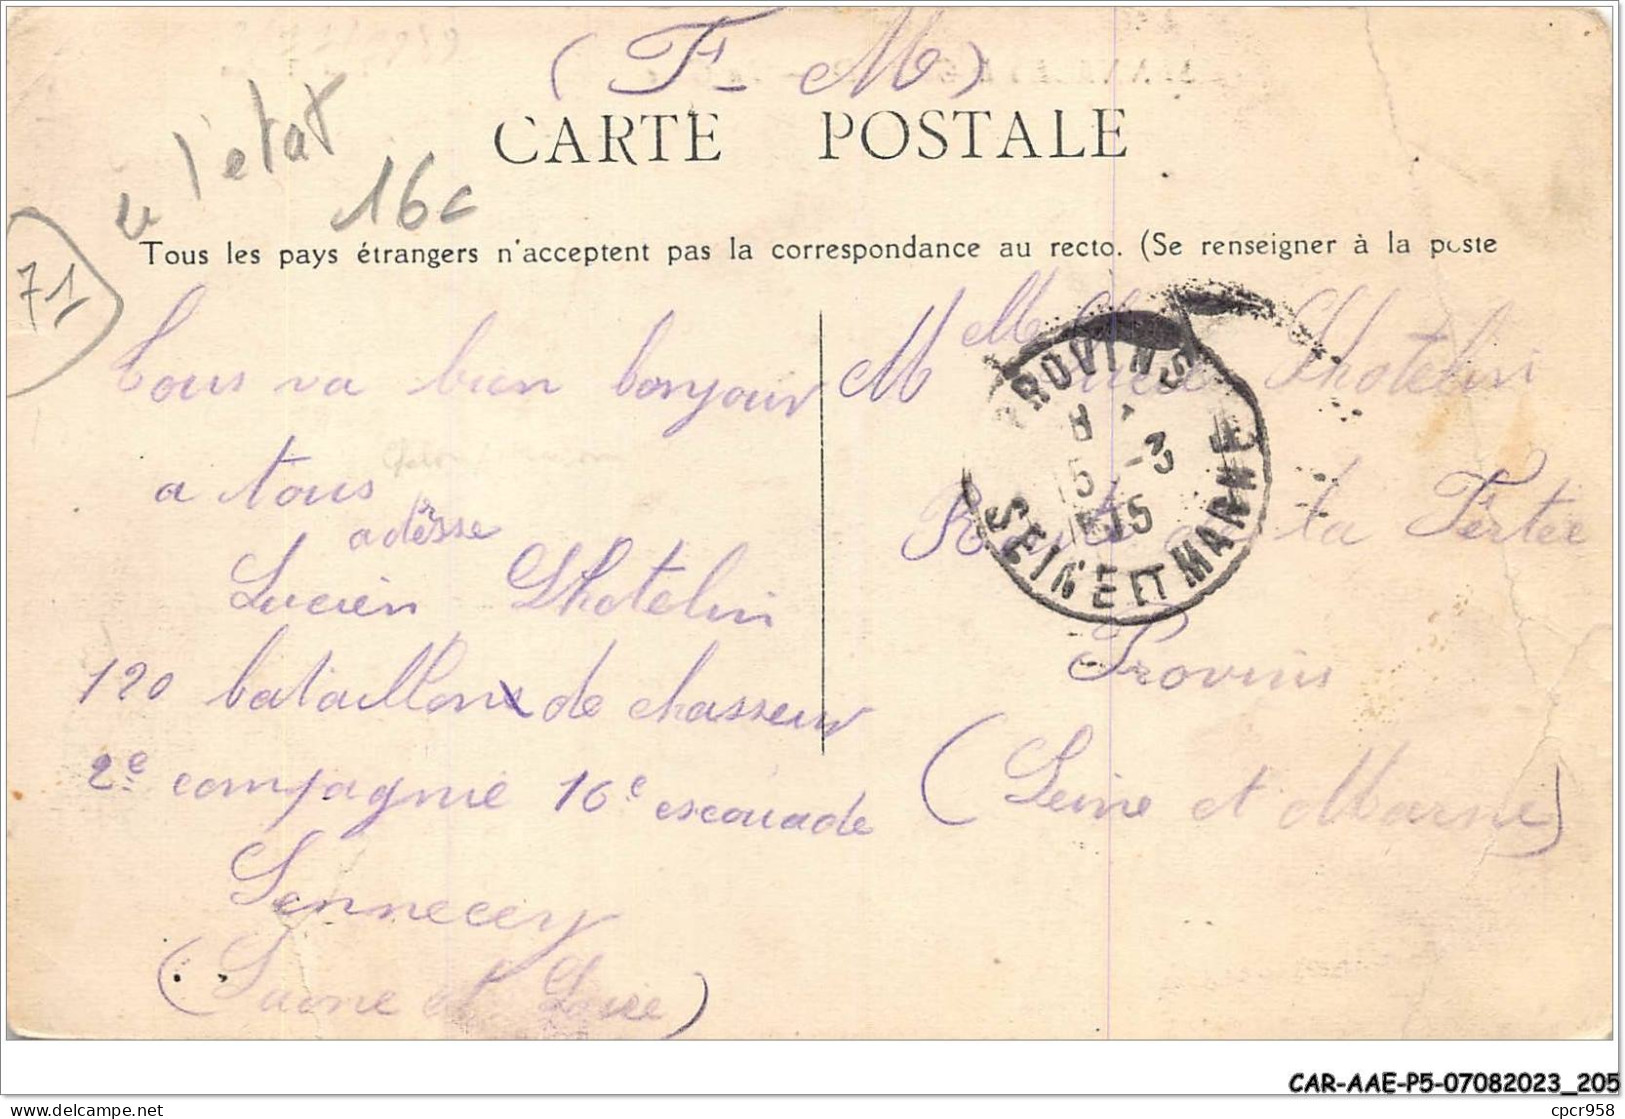 (F M)
CARTE POSTALE
l'etat
16c
71
Tous les pays étrangers n'acceptent pas la correspondance au recto. (Se renseigner à la poste
Tous va bien bonjour
a tous
adèsse
Lucien Lhotelin
120 bataillon de chasseur
2e compagnie 16e escouade
Sennecey
(Saone et Loire)
M Lhotelin
Route de la Fertée
Provins
(Seine et Marne)
PROVINS
15 -3
15
SEINE ET MARNE
CAR-AAE-P5-07082023_205
delcampe.net
cpcr958